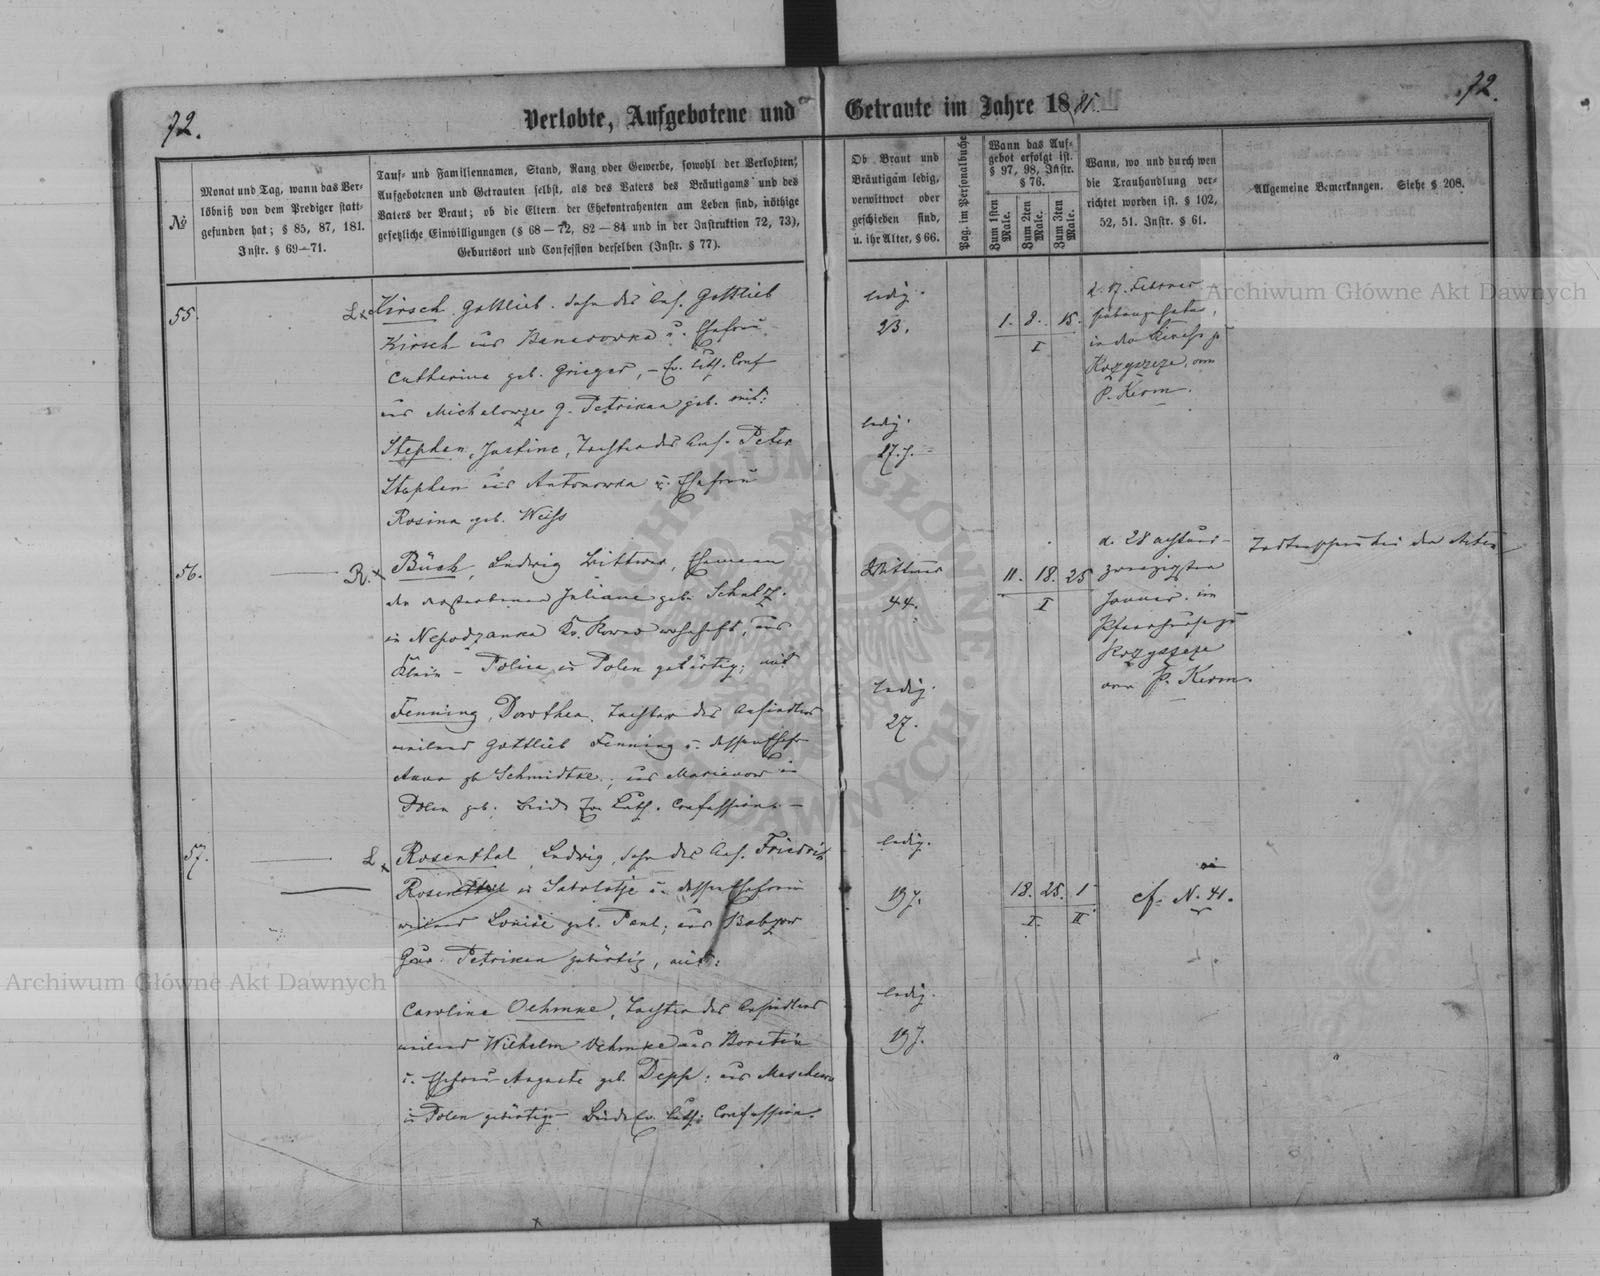 72.
72.
Verlobte, Aufgebotene und Getraute im Jahre 1885.
№
Monat und Tag, wann das Ver-
löbniß von dem Prediger statt-
gefunden hat; § 85, 87, 181.
Instr. § 69—71.
Tauf- und Familiennamen, Stand, Rang oder Gewerbe, sowohl der Verlobten,
Aufgebotenen und Getrauten selbst, als des Vaters des Bräutigams und des
Vaters der Braut; ob die Eltern der Ehekontrahenten am Leben sind, nöthige
gesetzliche Einwilligungen (§ 68—72, 82—84 und in der Instruktion 72, 73),
Geburtsort und Confession derselben (Instr. § 77).
Ob Braut und
Bräutigam ledig,
verwittwet oder
geschieden sind,
u. ihr Alter, § 66.
Pag. im Personalbuche
Wann das Auf-
gebot erfolgt ist.
§ 97, 98, Instr.
§ 76.
Zum 1sten
Male.
Zum 2ten
Male.
Zum 3ten
Male.
Wann, wo und durch wen
die Trauhandlung ver-
richtet worden ist. § 102,
52, 51. Instr. § 61.
Allgemeine Bemerknngen. Siehe § 208.
55.
L x Kirsch Gottlieb. Sohn des Ans. Gottlieb
Kirsch aus Banasowka u. Ehefrau
Catherina geb. Grieger, – Ev. Luth. Conf
aus g. Petrikau geb. mit:
Stephan, Justine, Tochter des Ans. Peter
Stephan aus Antonowka u. Ehefrau
Rosina geb. Weiss
ledig.
23.
ledig.
27. J.
1. 8. 15.
I
d. 17. Februar
in der Kirche zu
Rozyszcze, vom
P. Kerm.
56.
R. x Büch, Ludwig Wittwer, Ehemann
der verstorbenen Juliane geb. Schulz.
in Kr. Kowno wohnhaft, aus
Klein – in Polen gebürtig; mit
Fenning, Dorothea, Tochter des Ansiedlers
weiland Gottlieb Fenning u. dessen Ehefr
Anna gb Schmidtke, aus Marianow in
Polen geb. Beide Ev. Luth. Confession. –
Wittwer
44.
ledig.
27.
11. 18. 25
I
d. 28 achtund-
zwanzigsten
Januar. im
Pfarrhause zu
Rozyszcze
vom P. Kerm.
Todtenschein bei den Acten
57.
L x Rosenthal Ludwig, Sohn des Ans. Friedrich
in u. dessen Ehefrau
weiland Louise geb. aus
Gouv. Petrikau gebürtig, mit:
Caroline Oehmke, Tochter des Ansiedlers
weiland Wilhelm Oehmke aus Boratin
u. Ehefrau Auguste geb. aus
in Polen gebürtig – Beide Ev. Luth. Confession.
ledig.
19 J.
ledig.
19 J.
18. 25. 1
I. II
cf. N. 41.
Archiwum Główne Akt Dawnych
Archiwum Główne Akt Dawnych
ARCHIWUM GŁÓWNE AKT DAWNYCH